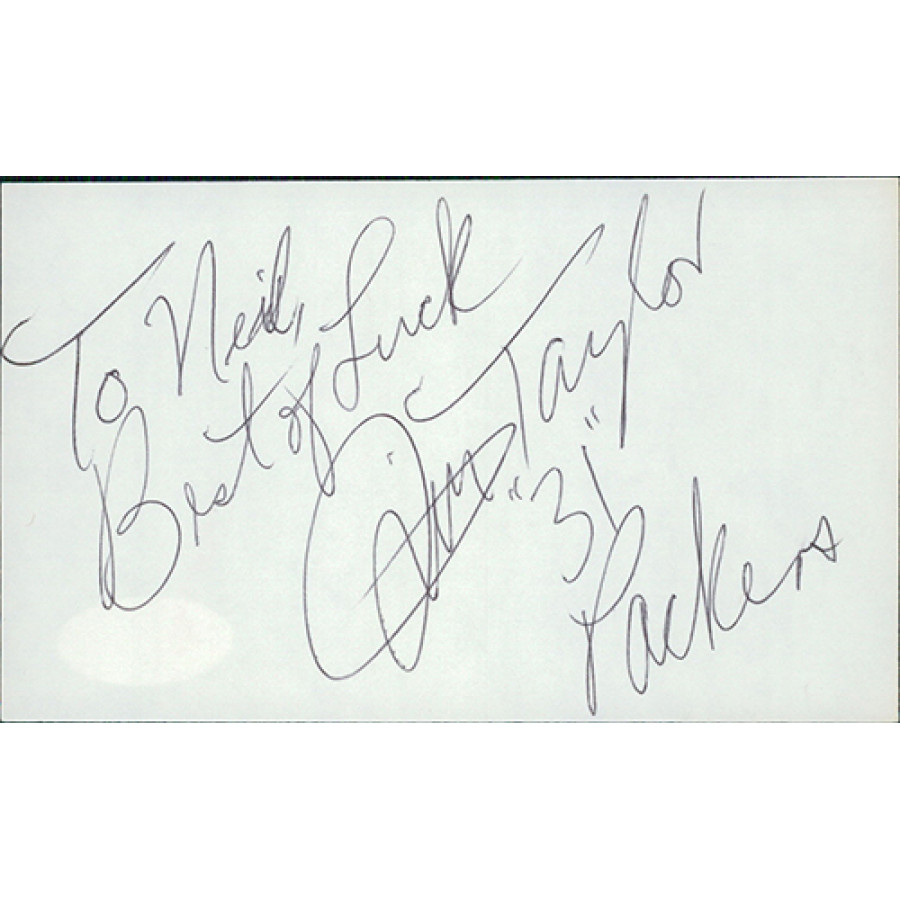 To Neil,
Best of Luck
Jim Taylor
"31"
Packers